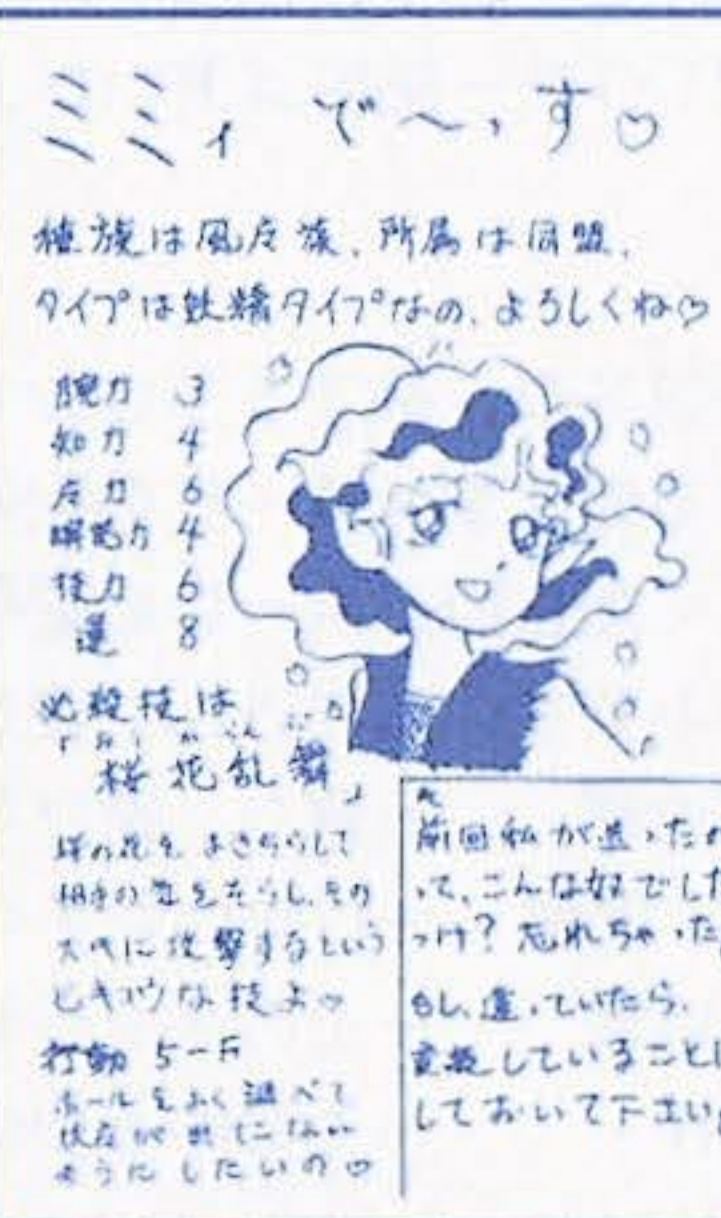 ミミィ で〜っす♡
種族は風族、所属は同盟、
タイプは妖精タイプなの、よろしくね♡
腕力 3
知力 4
6
4
技力 6
運 8
必殺技は
桜花乱舞」
桜の花をまきちらして
相手の気をそらし、その
スキに攻撃するという
ヒキョウな技よ♡
行動 5-
ホールをよく調べて
ようにしたいの♡
前回私が送ったの
って、こんな奴でした
っけ?忘れちゃった
もし、違っていたら、
変装していることに
しておいて下さい